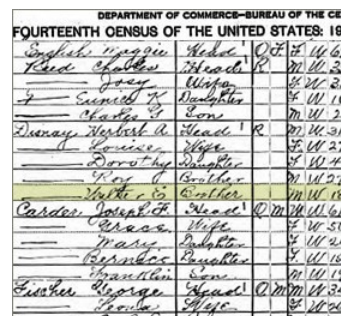 DEPARTMENT OF COMMERCE—BUREAU OF THE CE
FOURTEENTH CENSUS OF THE UNITED STATES: 19
English Maggie Head O F F W 6
Reed Charles Head R M W 3
Josy Wife F W
Eunice K Daughter F W 1
Charles G Son M W 2
Disney Herbert A. Head R M W 3
Louise Wife F W 27
Dorothy Daughter F W 4
Roy Brother M W 27
Walter E Brother M W 18
Carder Joseph F. Head O M M W 6
Grace Wife F W 50
Mary Daughter F W 2
Bernice Daughter F W 18
Franklin Son M W 1
Fischer George Head O M M W 3
Leona Wife F W